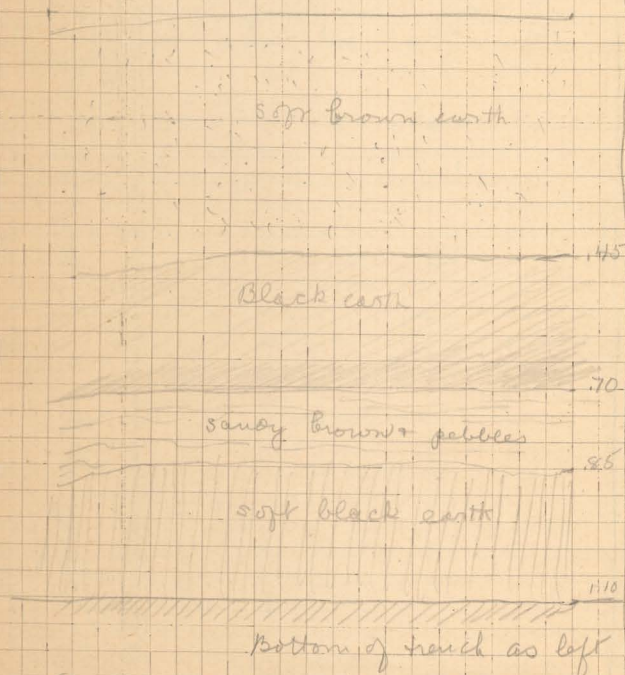 soft brown earth
.45
Black earth
.70
sandy brown + pebbles
.85
soft black earth
1.10
Bottom of trench as left